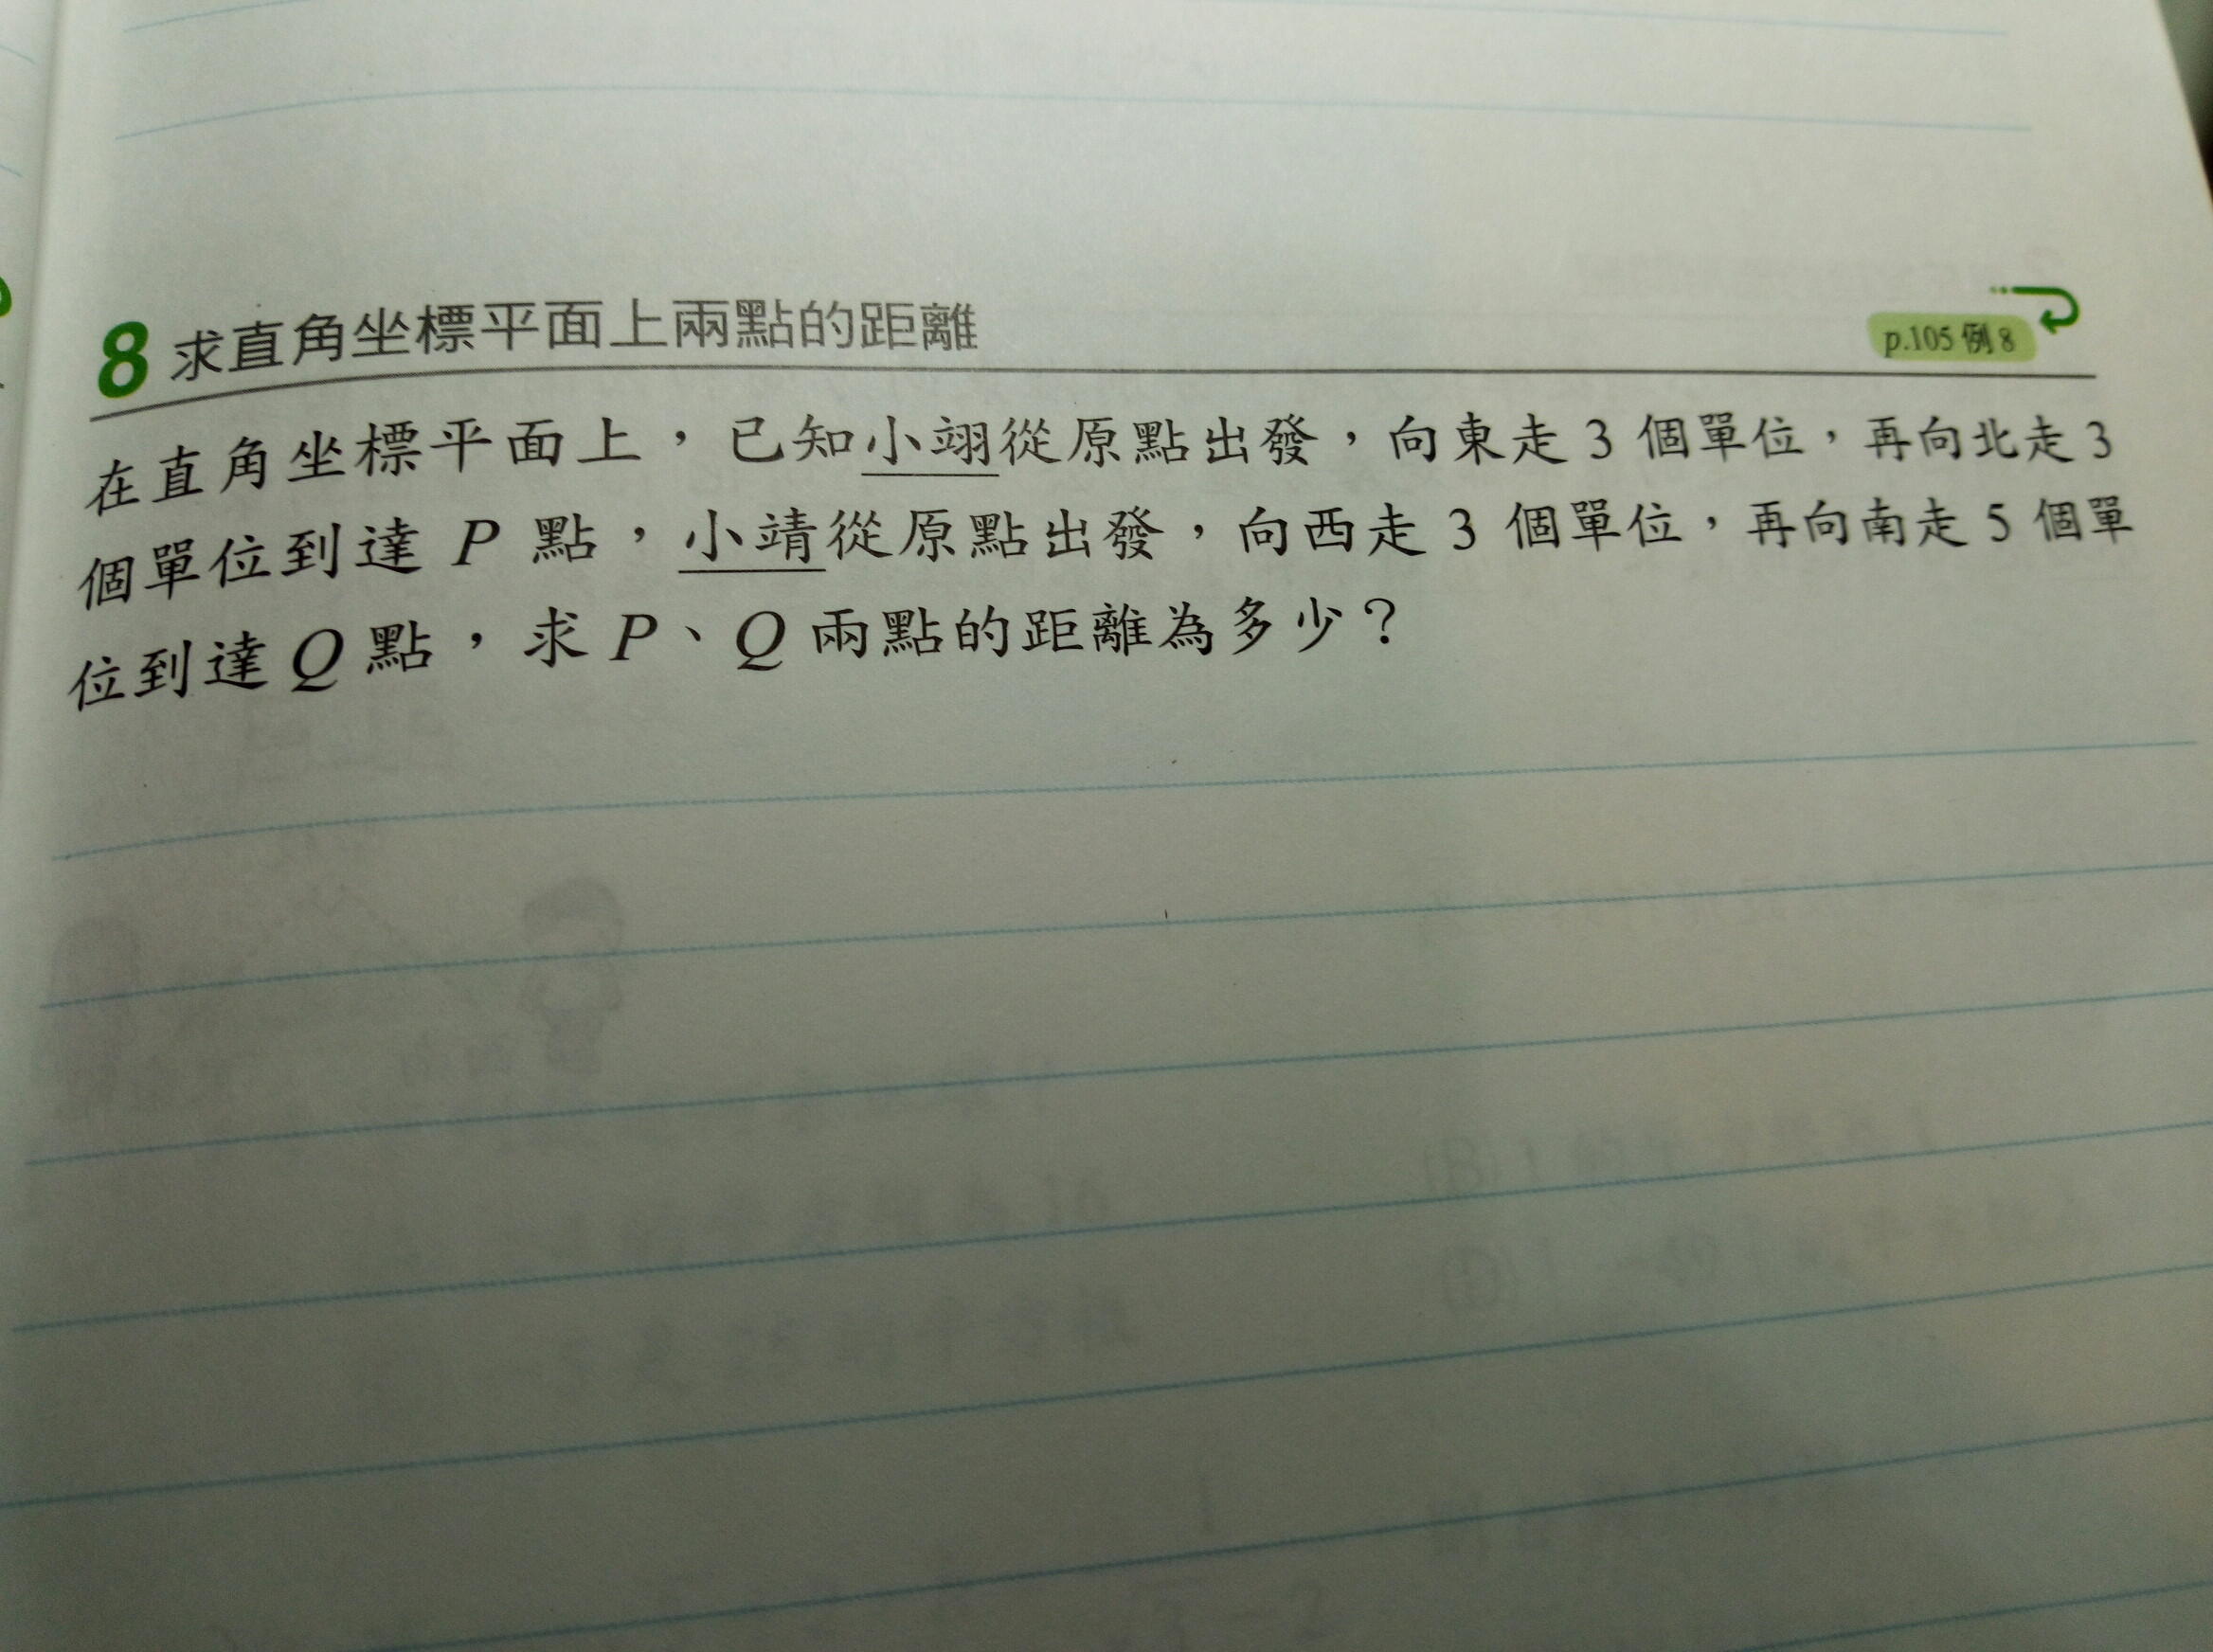 8 求直角坐標平面上兩點的距離
p.105 例 8
在直角坐標平面上，已知小翊從原點出發，向東走 3 個單位，再向北走 3
個單位到達 P 點，小靖從原點出發，向西走 3 個單位，再向南走 5 個單
位到達 Q 點，求 P、Q 兩點的距離為多少？